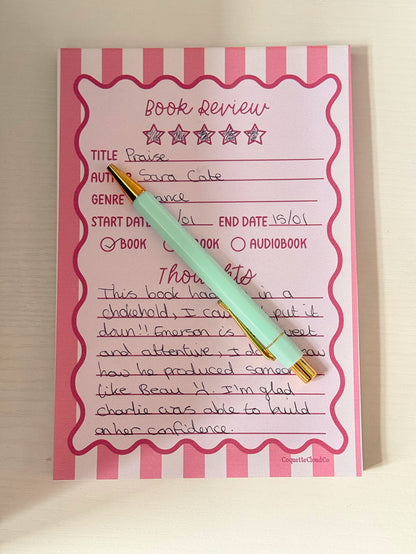 Book Review
TITLE Praise
Sara Cate
GENRE
START DATE /01 END DATE 15/01
BOOK AUDIOBOOK
Thoughts
This book had in a
chokehold, I put it
down!! Emerson is
and attentive, I
how he produced
like Beau I'm glad
charlie was able to build
on her confidence.
CoquetteCloudCo